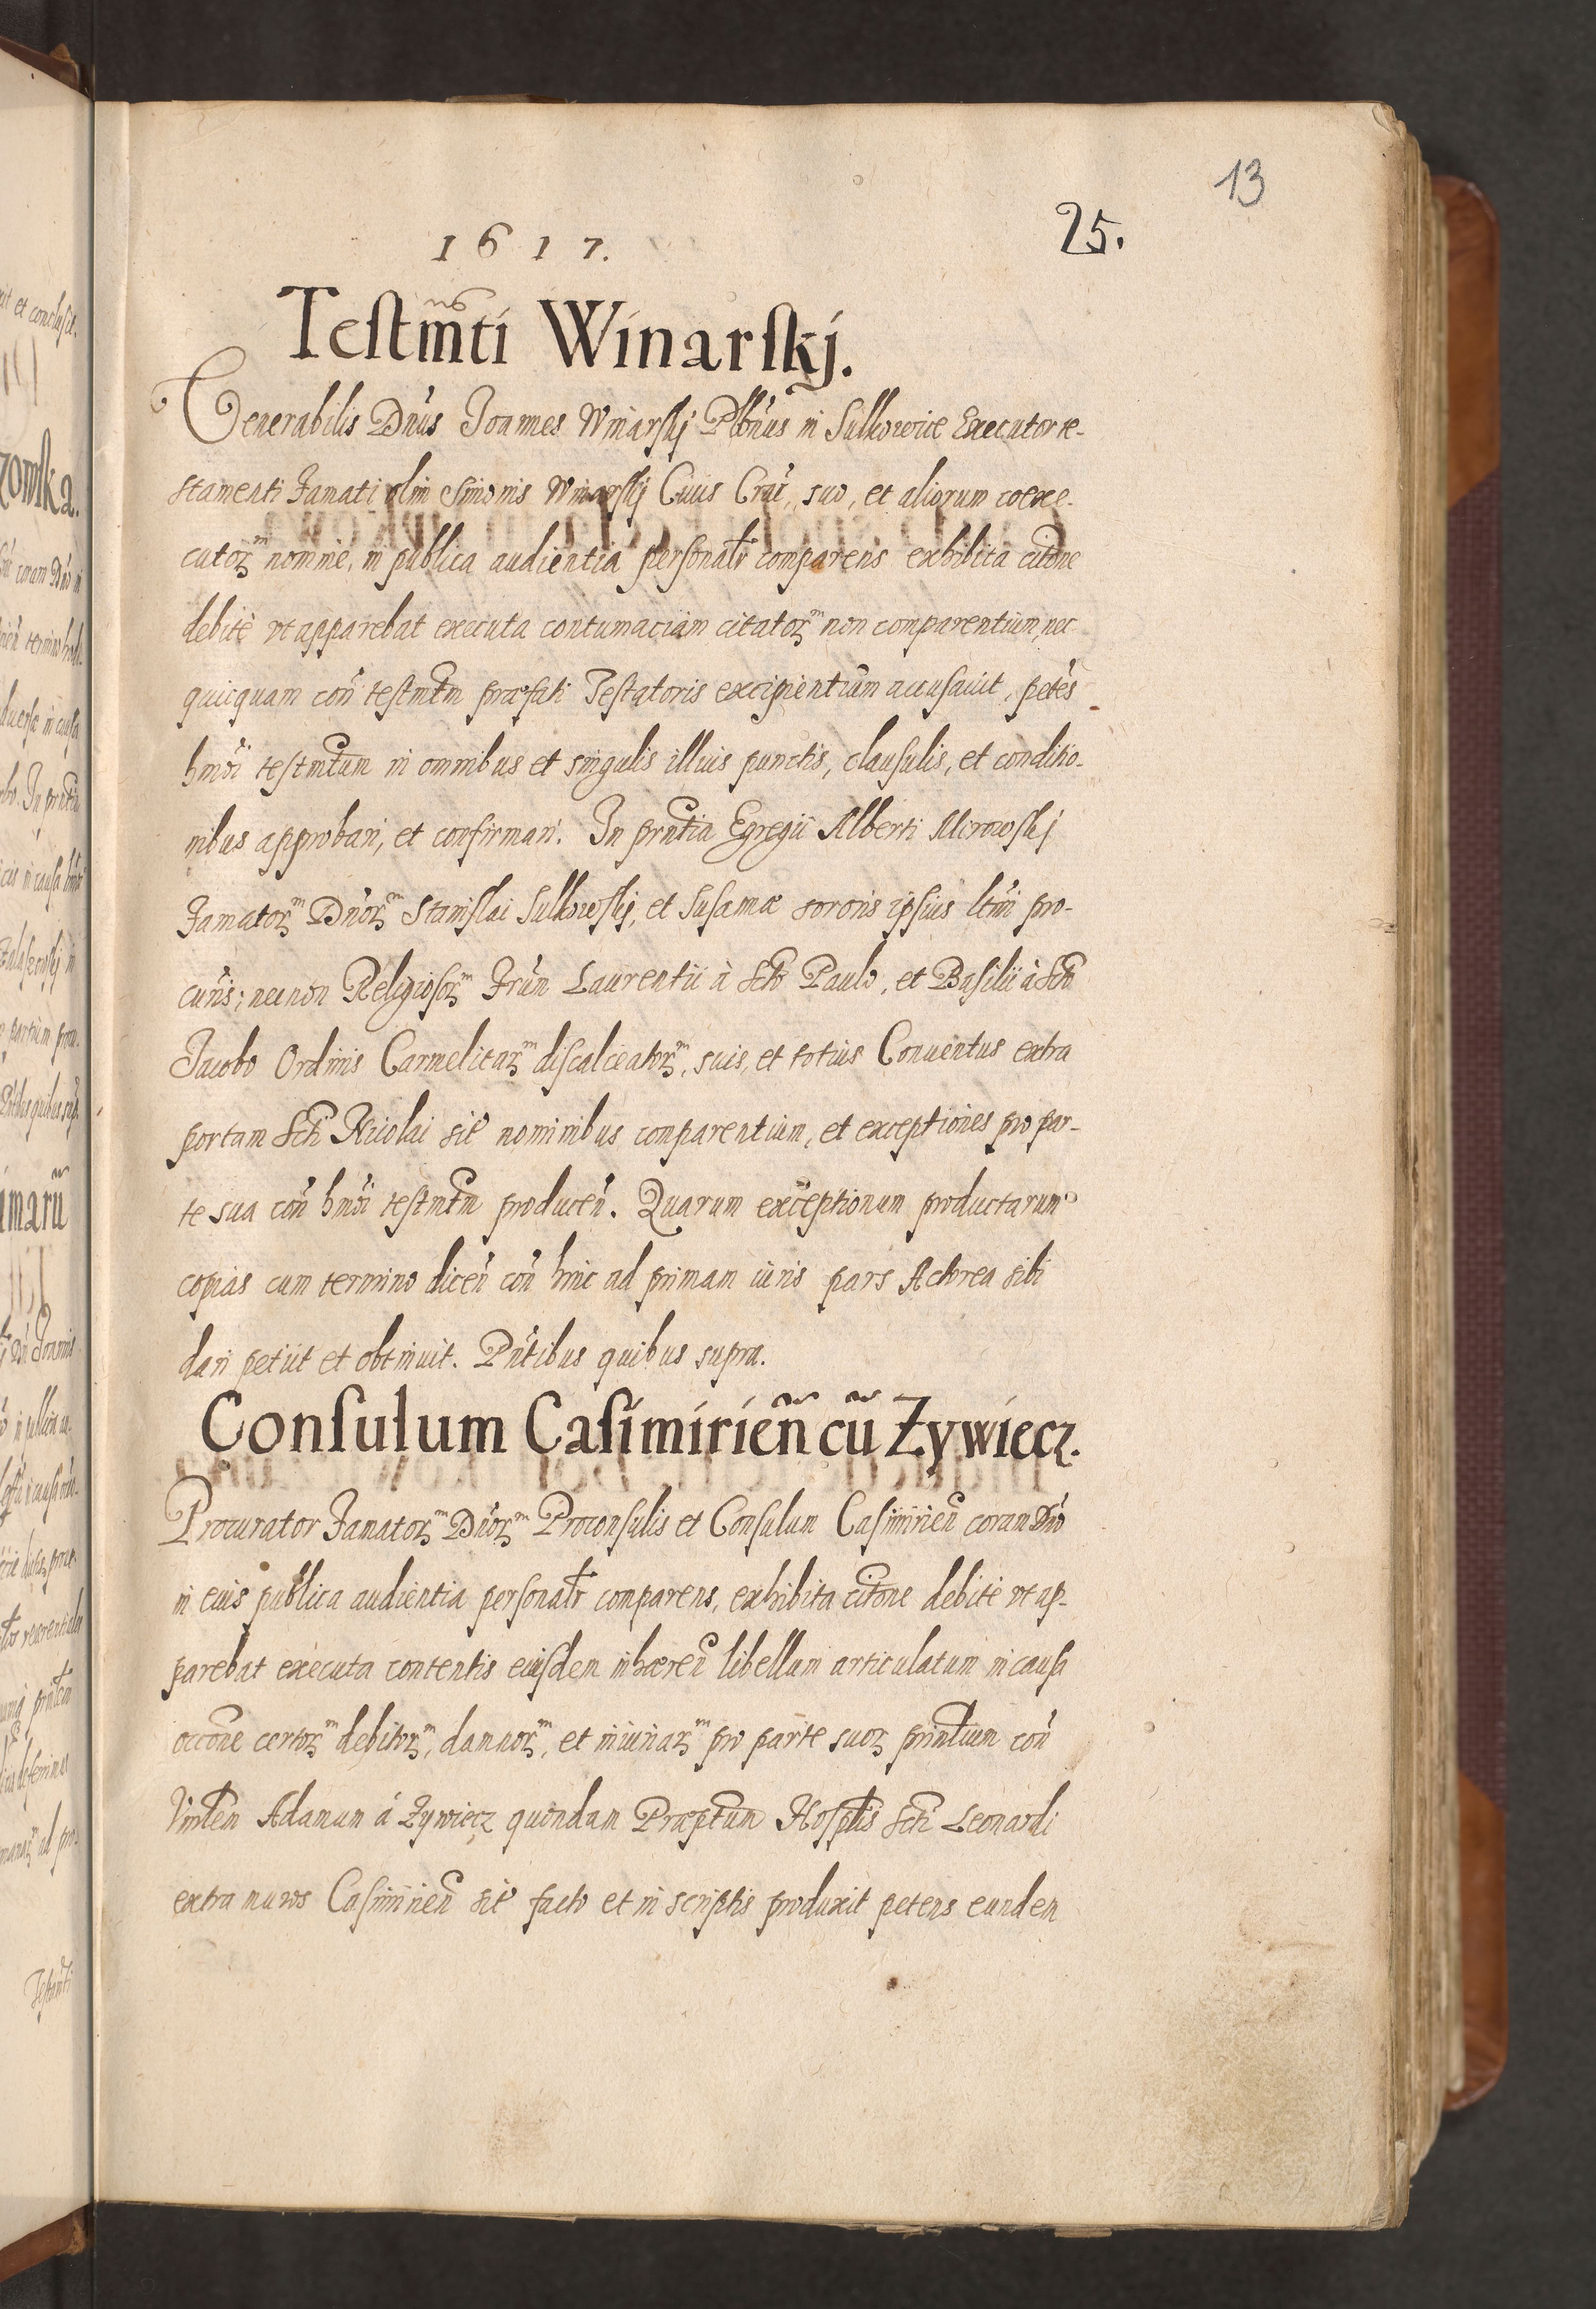 13
25.
1617.
Testm̃ti Winarskj.
Venerabilis Dnus Joannes Winarskj Plbnus in Sulkowice Executor te-
stamenti Famati olim Simonis Winarskj Ciuis Crac, suo, et aliorum coexe-
cutorm nomine, in publica audientia personalr comparens exhibita citone
debite vt apparebat executa contumaciam citatorm non comparentium, nec
quicquam con testmtm præfati Testatoris excipientium accusauit, petes
hmoi testmtum in omnibus et singulis illius punctis, clausulis, et conditio-
nibus approbari, et confirmari. In prntia Egregii Alberti Mirowskj
Famatorm Dnorm Stanislai Sulkowskj, et Susannæ sororis ipsius ltmi pro-
curis; necnon Religiosorm Frum Laurentii à Scto Paulo, et Basilii à Scto
Jacobo Ordinis Carmelitarm discalceatorm, suis, et totius Conuentus extra
portam Scti Nicolai sit nominibus comparentium, et exceptiones pro par-
te sua con hmoi testmtm producen. Quarum exceptionum productarum
copias cum termino dicen con hinc ad primam iuris pars Actorea sibi
dari petiit et obtinuit. Pntibus quibus supra.
Consulum Casimirieñ cũ Zywiecz.
Procurator Famatorm Dnorm Proconsulis et Consulum Casimirien coram Dno
in eius publica audientia personalr comparens, exhibita citone debite vt ap-
parebat executa contentis eiusdem inhæren libellum articulatum in causa
occone certorm debitorm, damnorm, et iniuriarm pro parte suor printium con
Vnblem Adamum á Zywiecz quondam Præptum Hosplis Scti Leonardi
extra muros Casimirien sit facto et in scriptis produxit petens eundem